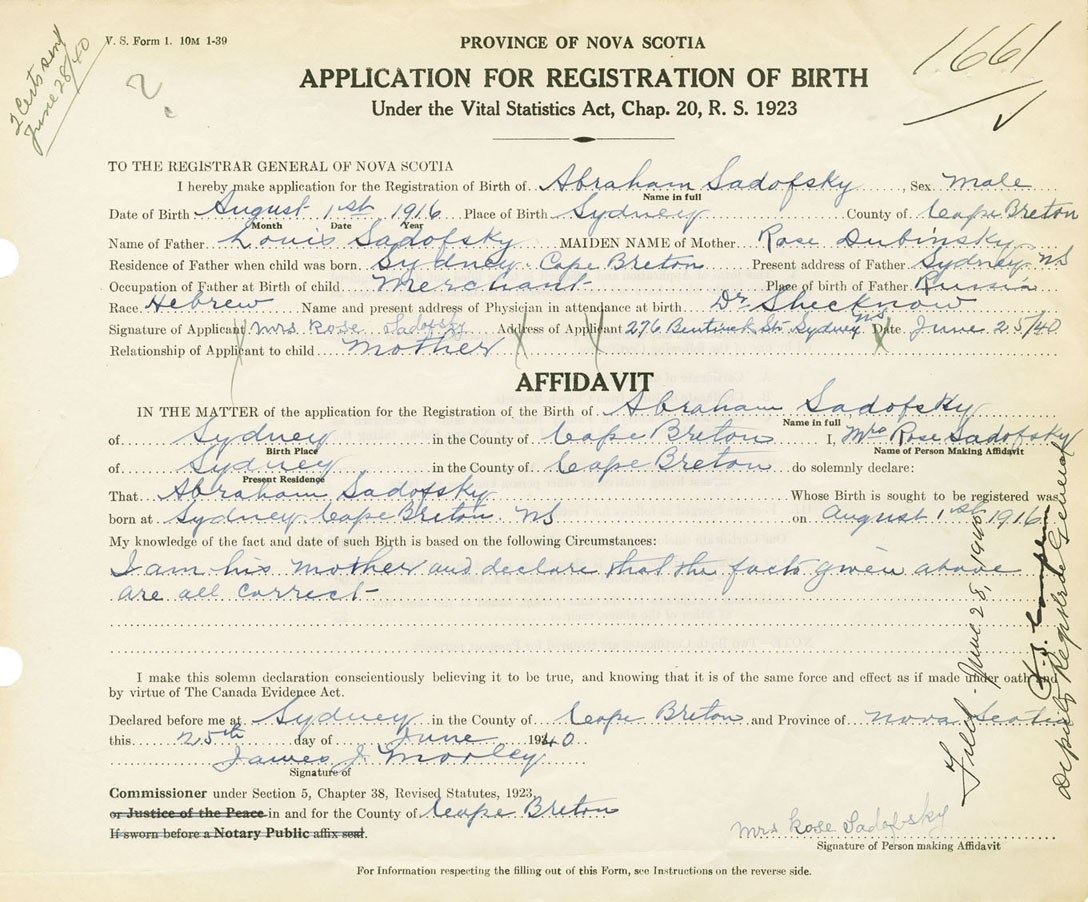 2 Certs sent
June 28/40
V. S. Form 1. 10M 1-39
2
1661
PROVINCE OF NOVA SCOTIA
APPLICATION FOR REGISTRATION OF BIRTH
Under the Vital Statistics Act, Chap. 20, R. S. 1923
TO THE REGISTRAR GENERAL OF NOVA SCOTIA
I hereby make application for the Registration of Birth of Abraham Sadofsky, Sex Male
Name in full
Date of Birth August 1st 1916 Place of Birth Sydney County of Cape Breton
Month Date Year
Name of Father Louis Sadofsky MAIDEN NAME of Mother Rose Dubinsky
Residence of Father when child was born Sydney Cape Breton Present address of Father Sydney NS
Occupation of Father at Birth of child Merchant Place of birth of Father Russia
Race Hebrew Name and present address of Physician in attendance at birth Dr. Shecknow
Signature of Applicant Mrs Rose Sadofsky Address of Applicant 276 Bentinck St. Sydney NS Date June 25/40
Relationship of Applicant to child Mother
AFFIDAVIT
IN THE MATTER of the application for the Registration of the Birth of Abraham Sadofsky
Name in full
of Sydney in the County of Cape Breton I, Mrs Rose Sadofsky
Birth Place Name of Person Making Affidavit
of Sydney in the County of Cape Breton do solemnly declare:
Present Residence
That Abraham Sadofsky Whose Birth is sought to be registered was
born at Sydney Cape Breton NS on August 1st 1916
My knowledge of the fact and date of such Birth is based on the following Circumstances:
I am his mother and declare that the facts given above
are all correct
I make this solemn declaration conscientiously believing it to be true, and knowing that it is of the same force and effect as if made under oath and
by virtue of The Canada Evidence Act.
Declared before me at Sydney in the County of Cape Breton and Province of Nova Scotia
this 25th day of June 1940
James J. Morley
Signature of
Commissioner under Section 5, Chapter 38, Revised Statutes, 1923,
or Justice of the Peace in and for the County of Cape Breton
If sworn before a Notary Public affix seal.
Mrs Rose Sadofsky
Signature of Person making Affidavit
For Information respecting the filling out of this Form, see Instructions on the reverse side.
Filed June 28, 1940
Deputy Registrar General